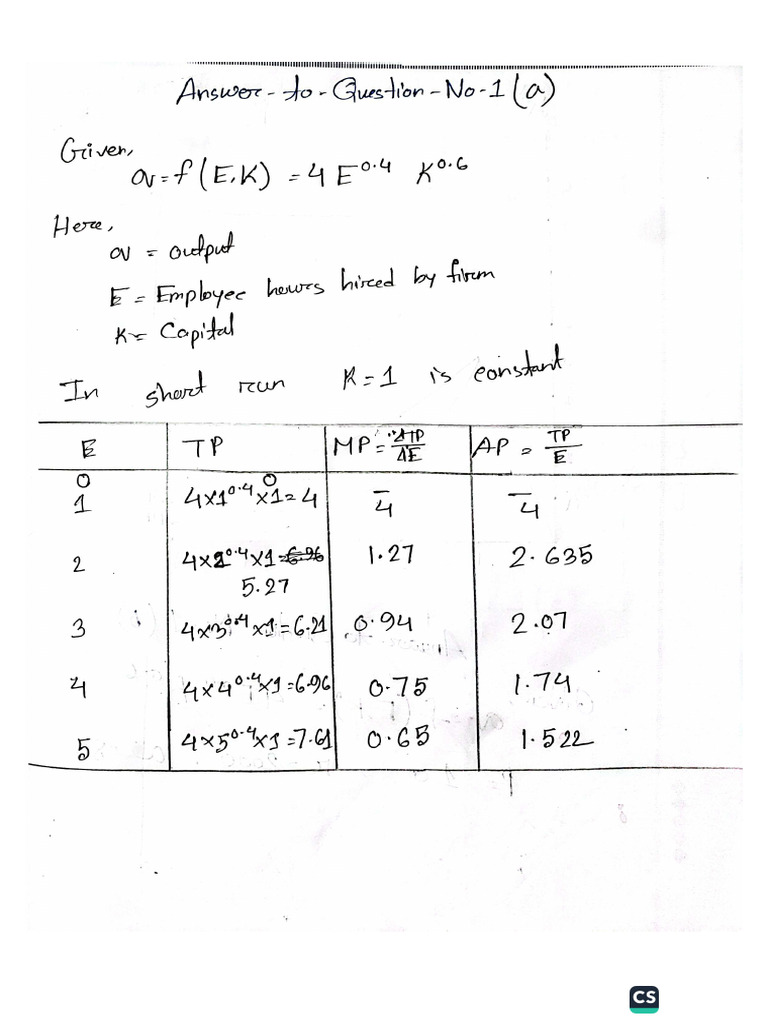 Answer-to-Question-No-1(a)
Given,
q=f(E,K) = 4 E^0.4 K^0.6
Here,
q = output
E = Employee hours hired by firm
K= Capital
In short run K=1 is constant
E TP MP=ΔTP/ΔE AP = TP/E
0 0 – –
1 4×1^0.4×1=4 4 4
2 4×2^0.4×1=6.96 1.27 2.635
5.27
3 4×3^0.4×1=6.21 0.94 2.07
4 4×4^0.4×1=6.96 0.75 1.74
5 4×5^0.4×1=7.61 0.65 1.522
CS